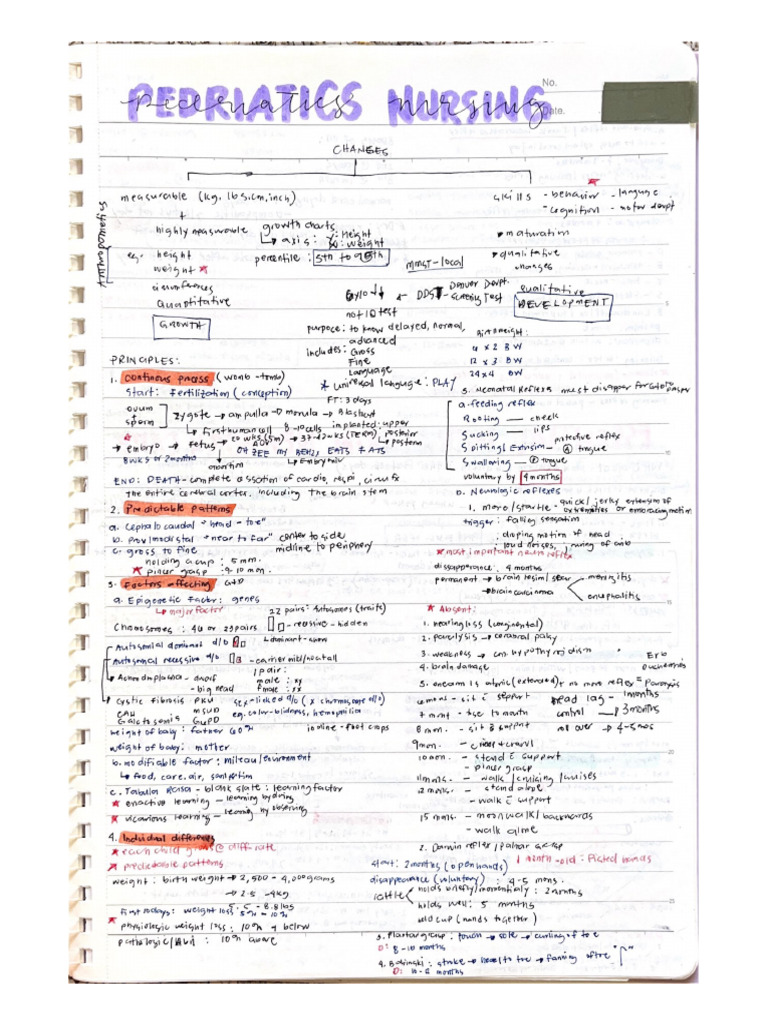 PEDRIATICS NURSING
pediatrics nursing
No.
Date.
CHANGES
measurable (kg, lbs, cm, inch)
highly measurable
eg. height
weight ★
circumferences
Quantitative
GROWTH
growth charts
axis: y: Height
x: weight
percentile: 5th to 95th
skills - behavior - language
- cognitive - motor devpt
• maturation
• qualitative
changes
qualitative
DEVELOPMENT
MMST - local
DDST Denver Devpt.
Screening Test
6 y/o ↓
not IQ test
purpose: to know delayed, normal,
advanced
Includes: Gross
Fine
Language
★ universal language: PLAY
Birthweight:
4 x 2 BW
12 x 3 BW
24 x 4 BW
PRINCIPLES:
1. continous process (womb - tomb)
start: Fertilization (conception)
FT: 3 days
ovum
+
sperm
zygote → ampulla → morula → Blastcyst
↳ first human cell 8-10 cells implanted: upper
posterior
★ embryo → Fetus → 20 wks (5m) → 37-42wks (TERM)
→ postterm
8 wks or 2 months
abortion
END: DEATH - complete cessation of cardio, respi, circux
the entire cerebral center, including the brain stem
2. Predictable patterns
a. Cephalocaudal "head - toe"
b. proximodistal "near to far" center to side
midline to periphery
c. gross to fine
holding a cup: 5 mon.
★ pincer grasp: 9-10 mon.
3. Factors affecting G&D
a. Epigenetic Factor: genes
↳ major factor
Chromosomes: 46 or 23 pairs
22 pairs: Autosomes (traits)
- recessive - hidden
↳ dominant - shows
Autosomal dominant d/o
Autosomal recessive d/o
- carrier
1 pair:
male: xy
Female: xx
→ Achondroplasia - dwarf
- big head
Cystic fibrosis PKU
CAH MSUD
Galactosemia G6PD
sex-linked d/o (x chromosome d/o)
eg. color-blidness, hemophilia
height of baby: father 60%
weight of baby: mother
b. modifiable factor: milieu/environment
↳ food, care, air, sanitation
c. Tabula Rasa - blank slate: learning factor
★ enactive learning - learning by doing
★ vicarious learning - learning by observing
4. Individual differences
★ each child grows @ diff rate
★ predictable patterns
weight: birth weight → 2,500 - 4,000 grams
→ 2.5 - 4kg
5.5 - 8.8 lbs
First 10 days: weight loss: 5% - 10%
★ physiologic weight loss: 10% & below
pathologic/Abn: 10% above
3. Neonatal Reflexes must disapper for
a. feeding reflex
Rooting — cheek
Sucking — lips
Spitting / Extrusion - protective reflex
tongue
Swallowing — tongue
voluntary by 4 months
b. Neurologic reflexes
1. moro / startle - quick / jerky extension of
extremities or embracing motion
trigger: falling sensation
; droping motion of head
; loud noises, ; jarring of crib
★ most important neuro reflex
dissapperance: 4 months
permanent → brain lesion/
→ brain carcinoma
meningitis
encephalitis
★ Absent:
1. hearing loss (congenital)
2. paralysis → cerebral palsy
3. weakness → cng. hypothyroidism
4. brain damage
5. one arm is atonic (extended) & no more reflex = Paralysis
Erb
Duchennes
6 mon - sit c support
7 mont - toe to mouth
8 mon. - sit s support
9mon. - creep & crawl
10 mon. - stand c support
- pincer grasp
11 mons. - walk / cruising / cruises
12 mons. - stand alone
- walk c support
15 mons. - moonwalk / backwards
- walk alone
head lag - 1months
control → 3 months
roll over → 4-5 mos
2. Darwin reflex / palmar grasp
start: 2months (open hands)
1 month-old: Fisted hands
disappearance (voluntary): 4-5 mons.
holds briefly/momentarily: 2 months
holds well: 5 months
hold cup (hands together)
3. Plantar grasp: touch → sole → curling of toe
D: 8-10 months
4. Babinski: stroke → heel to toe → fanning of toe
D: 10-12 months